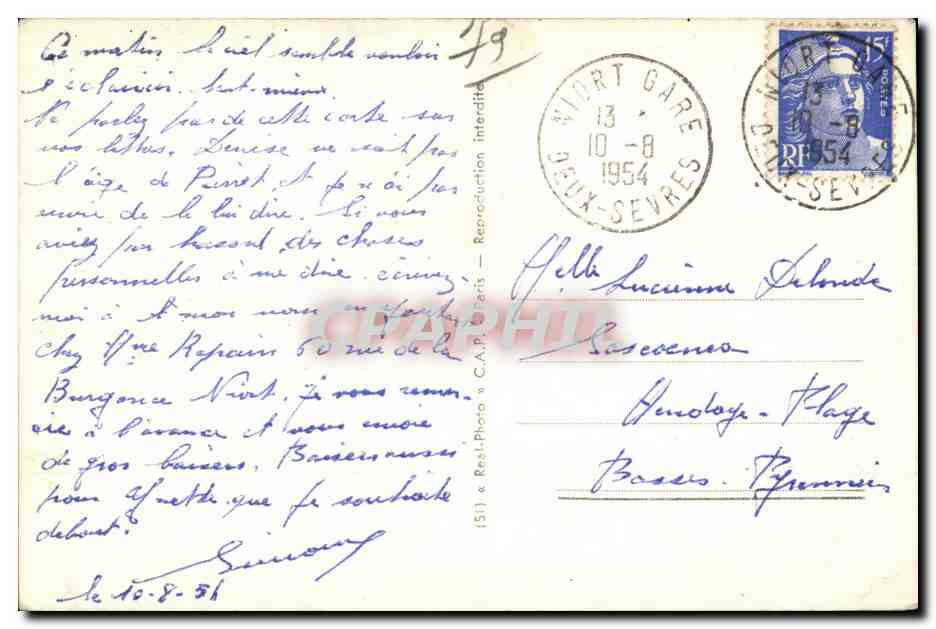 Ce matin le ciel semble vouloir
s'éclaircir. tant-mieux
Ne parlez pas de cette carte sur
vos lettres. Denise ne sait pas
l'âge de Pierret et je n'ai pas
envie de le lui dire. Si vous
aviez par hasard des choses
personnelles à me dire écrivez-
moi à mon nom en
chez Mme Repain 60 rue de la
Burgonce Niort. Je vous remer-
cie à l'avance et vous envoie
de gros baisers. Baisers aussi
pour Ginette que je souhaite
debout?
Simone
le 10-8-54
179
(51) « Real-Photo » C.A.P. Paris — Reproduction interdite
NIORT GARE
13 *
10 -8
1954
DEUX-SEVRES
15F
POSTES
RF
NIORT GARE
13
10 -8
1954
DEUX-SEVRES
Melle Lucienne
Hendaye-Plage
Basses-Pyrénnées
CPAPHIL